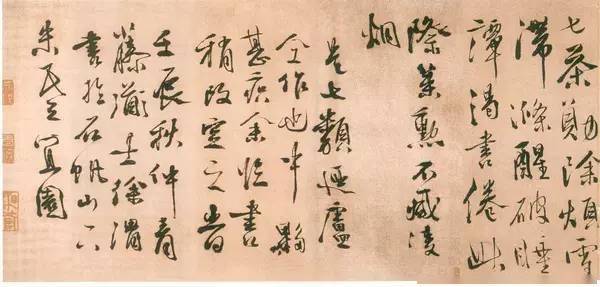 七茶勳除煩雪
滯滌醒破睡
譚渴書倦此
際策勳不減凌
烟
是七類廼盧
仝作也中夥
甚疾余臨書
稍改定之時
壬辰秋仲青
藤道士徐渭
書於石帆山下
朱氏宜園